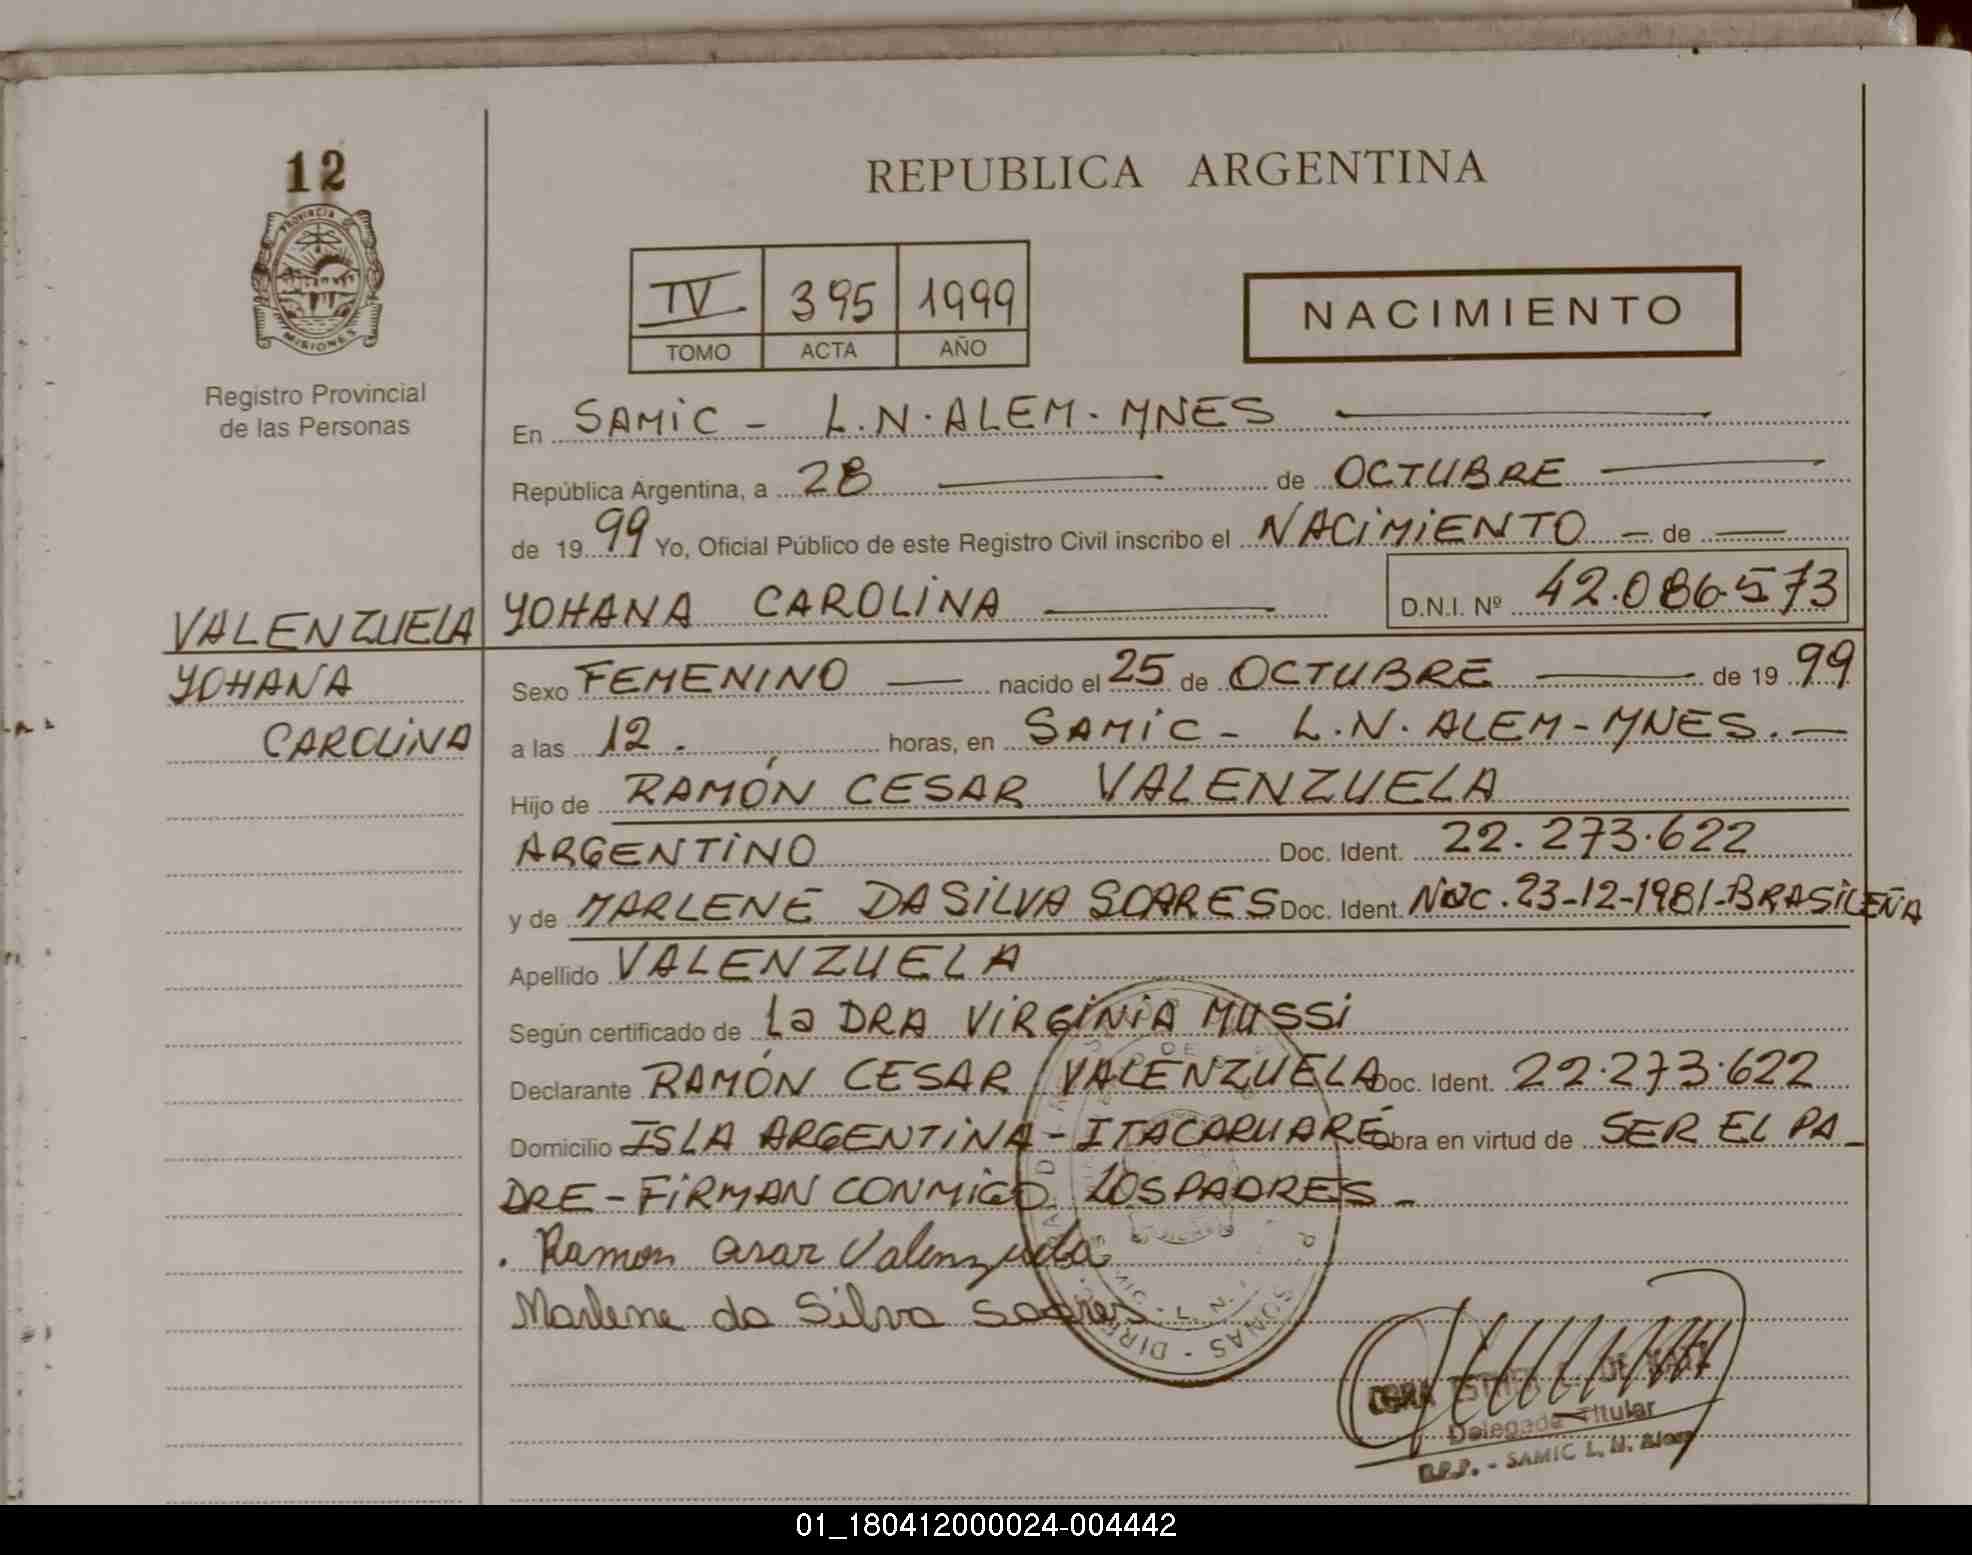 12
PROVINCIA DE
MISIONES
Registro Provincial
de las Personas
VALENZUELA
YOHANA
CAROLINA
REPUBLICA ARGENTINA
IV 395 1999
TOMO ACTA AÑO
NACIMIENTO
En SAMIC - L.N. ALEM - MNES
República Argentina, a 28 de OCTUBRE
de 1999 Yo, Oficial Público de este Registro Civil inscribo el NACIMIENTO - de
YOHANA CAROLINA D.N.I. Nº 42.086.573
Sexo FEMENINO nacido el 25 de OCTUBRE de 1999
a las 12. horas, en SAMIC - L.N. ALEM - MNES. -
Hijo de RAMÓN CESAR VALENZUELA
ARGENTINO Doc. Ident. 22.273.622
y de MARLENE DA SILVA SOARES Doc. Ident. Nac. 23-12-1981-BRASILEÑA
Apellido VALENZUELA
Según certificado de La DRA VIRGINIA MUSSI
Declarante RAMÓN CESAR VALENZUELA Doc. Ident. 22.273.622
Domicilio ISLA ARGENTINA - ITACARUARÉ Obra en virtud de SER EL PA-
DRE - FIRMAN CONMIGO LOS PADRES -
. Ramon Cesar Valenzuela
Marlene da Silva Soares
Delegada Titular
R.P.P. - SAMIC L. N. Alem
01_180412000024-004442